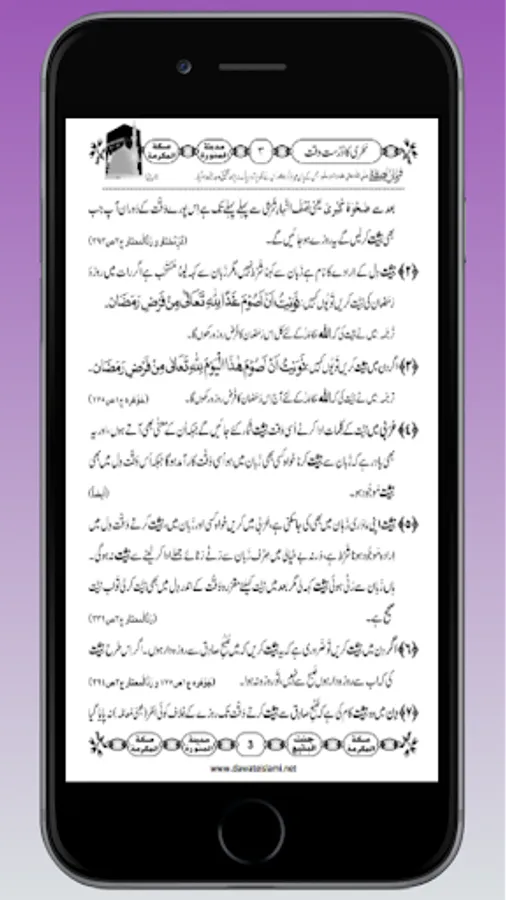 مكة المكرمة مدينة المنورة ٣ سَحَری کا دُرُست وقت
بعد سے ضَحْوَۂ کُبریٰ یعنی نِصفُ النَّہار شَرعی سے پہلے پہلے تک ہے اس پورے وَقت کے دَوران آپ جب
بھی نِیَّت کرلیں گے یہ روزے ہو جائیں گے۔ (دُرِّمُختار و رَدُّالْمُحتار ج۳ص۳۹۳)
﴿۲﴾ نِیَّت دل کے ارادے کا نام ہے زَبان سے کہنا شَرْط نہیں، مگر زَبان سے کہہ لینا مُسْتَحَب ہے اگر رات میں روزۂ
رَمَضان کی نِیَّت کریں تو یُوں کہیں: نَوَيْتُ اَنْ اَصُوْمَ غَدًا لِلّٰهِ تَعَالٰى مِنْ فَرْضِ رَمَضَانَ۔
ترجَمہ: میں نے نِیَّت کی کہ اللہ کے لئے کل اس رَمَضان کا فَرْض روزہ رکھوں گا۔
﴿۳﴾ اگر دن میں نِیَّت کریں تو یُوں کہیں: نَوَيْتُ اَنْ اَصُوْمَ هٰذَا الْيَوْمَ لِلّٰهِ تَعَالٰى مِنْ فَرْضِ رَمَضَانَ۔
ترجَمہ: میں نے نِیَّت کی کہ اللہ کے لئے آج اس رَمَضان کا فَرْض روزہ رکھوں گا۔
﴿٤﴾ عَرَبی میں نِیَّت کے کلمات ادا کرنے اُسی وَقت نِیَّت شُمار کئے جائیں گے جبکہ اُن کے معنٰی بھی آتے ہوں، اور یہ
بھی یاد رہے کہ زَبان سے نِیَّت کرنا خواہ کسی بھی زَبان میں ہو اُسی وَقت کار آمد ہوگا جبکہ اُس وَقت دل میں بھی
نِیَّت موجود ہو۔ (اَیضاً)
﴿۵﴾ نِیَّت اپنی مادَری زَبان میں بھی کی جا سکتی ہے، عَرَبی میں کریں خواہ کسی اور زَبان میں، نِیَّت کرتے وَقت دل میں
ارادہ موجود ہونا شَرْط ہے، ورنہ بے خیالی میں صِرْف زَبان سے رَٹے رَٹائے جملے ادا کر لینے سے نِیَّت نہ ہوگی۔
ہاں زَبان سے رَٹی ہوئی نِیَّت کہہ لی مگر بعد میں نِیَّت کیلئے مقرَّرہ وَقت کے اندر دل میں بھی نِیَّت کر لی تو اب نِیَّت
صحیح ہے۔
﴿٦﴾ اگر دن میں نِیَّت کریں تو ضَروری ہے کہ یہ نِیَّت کریں کہ میں صُبحِ صادِق سے روزہ دار ہوں۔ اگر اِس طرح نِیَّت
کی کہ اب سے روزہ دار ہوں صُبح سے نہیں، تو روزہ نہ ہوا۔
﴿۷﴾ دن میں وہ نِیَّت کام کی ہے کہ صُبحِ صادِق سے نِیَّت کرتے وَقت تک روزے کے خِلاف کوئی اَمْر نہ پایا گیا
مكة المكرمة مدينة المنورة 3 جنت البقيع مكة المكرمة
www.dawateislami.net